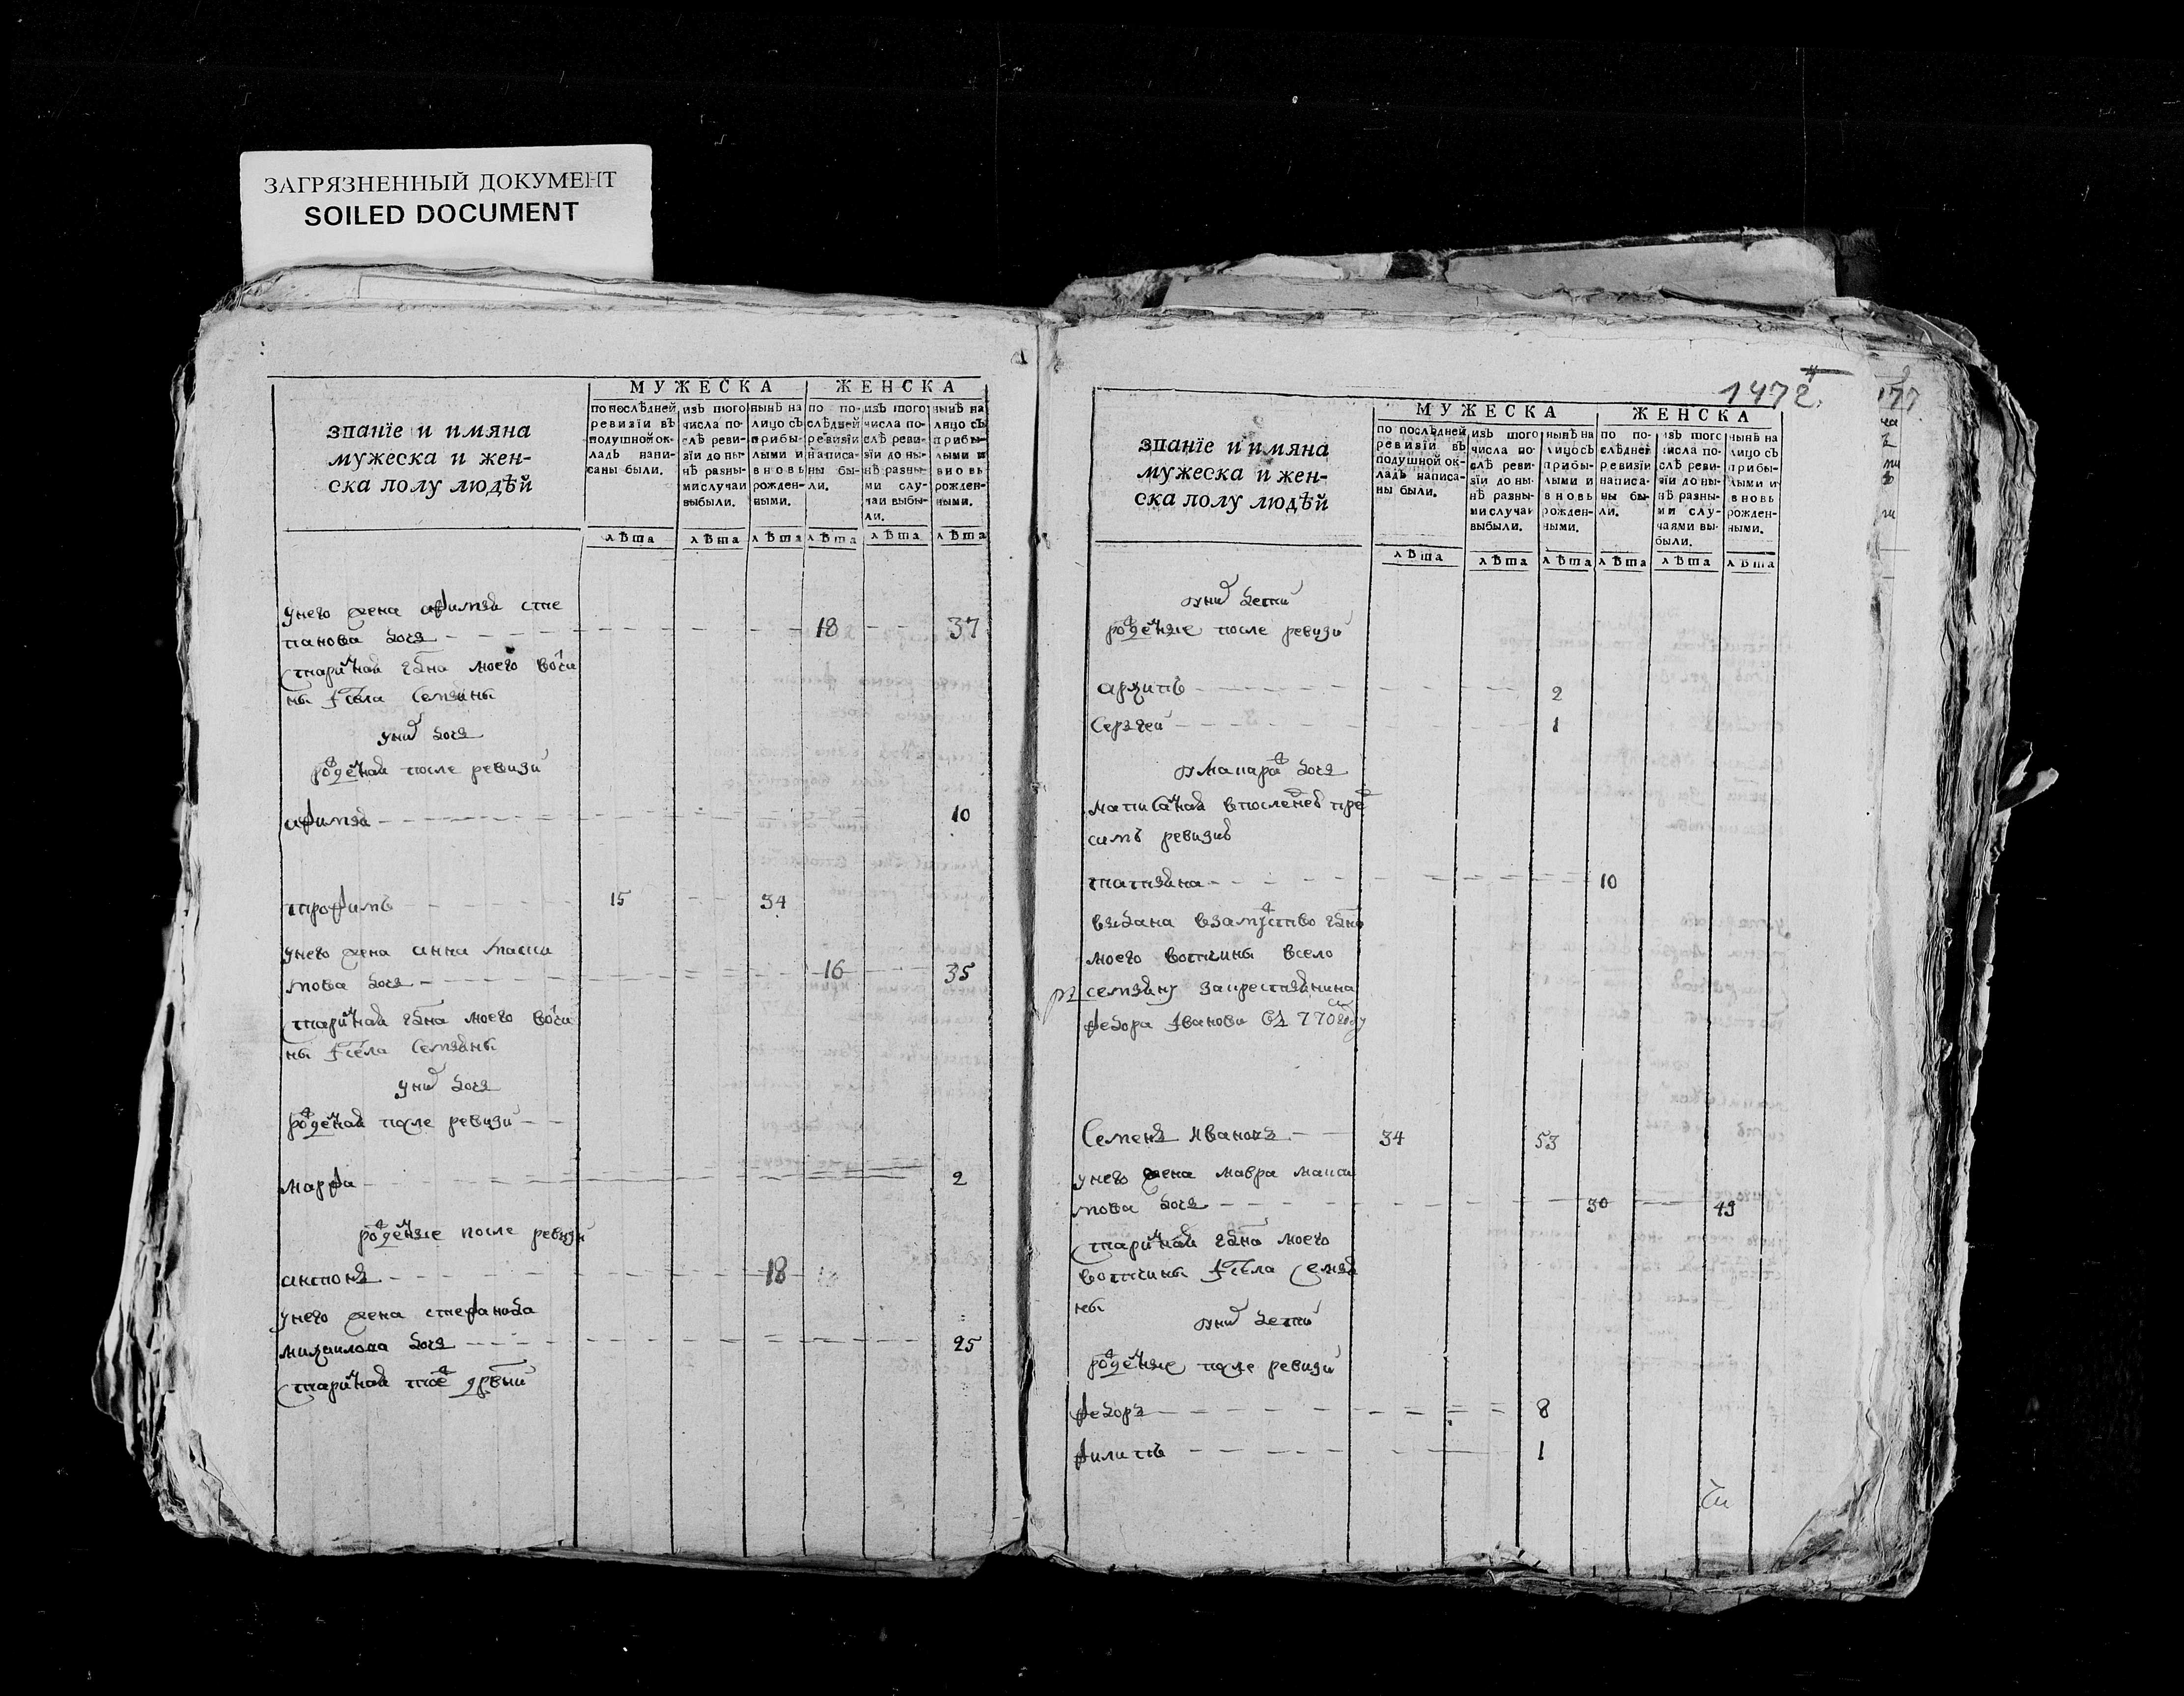 ЗАГРЯЗНЕННЫЙ ДОКУМЕНТ
SOILED DOCUMENT
званїе и имяна
мужеска и жен-
ска полу людѣй
МУЖЕСКА
по послѣдней
ревизїи въ
подушной ок-
ладъ напи-
саны были.
изъ того
числа по-
слѣ реви-
зїи до ны-
нѣ разны-
ми случаи
выбыли.
нынѣ на
лицо съ
прибы-
лыми и
вновь
рожден-
ными.
ЖЕНСКА
по по-
слѣдней
ревизїи
написа-
ны бы-
ли.
изъ того
числа по-
слѣ реви-
зїи до ны-
нѣ разны-
ми слу-
чаи выбы-
ли.
нынѣ на
лицо съ
прибы-
лыми и
вновь
рожден-
ными.
лѣта лѣта лѣта лѣта лѣта лѣта
унего жена афимья сте
панова дочь 18 37
старинная моего вотчи
ны села Семьяны
уних дочь
рожденная после ревизи
афимья 10
трофимъ 15 34
унего жена анна
мова дочь 16 35
старинная моего вотчи
ны села Семьяны
уних дочь
рожденная после ревизи
марфа 2
рожденные после ревизи
антонъ 18
унего жена стефанида
михаилова дочь 25
старинная тоe
1472
званїе и имяна
мужеска и жен-
ска полу людѣй
МУЖЕСКА
по послѣдней
ревизїи въ
подушной ок-
ладъ написа-
ны были.
изъ того
числа по-
слѣ реви-
зїи до ны-
нѣ разны-
ми случаи
выбыли.
нынѣ на
лицо съ
прибы-
лыми и
вновь
рожден-
ными.
ЖЕНСКА
по по-
слѣдней
ревизїи
написа-
ны бы-
ли.
изъ того
числа по-
слѣ реви-
зїи до ны-
нѣ разны-
ми слу-
чаями вы-
были.
нынѣ на
лицо съ
прибы-
лыми и
вновь
рожден-
ными.
лѣта лѣта лѣта лѣта лѣта лѣта
уних дети
рожденные после ревизи
архипъ 2
Сергеи 1
умакара дочь
написанная впоследнеи пред
симъ ревизиі
татьяна 10
выдана взамужство
моего вотчины всело
семьяну закрестьянина
федора Iванова 770 году
Семенъ Ивановъ 34 53
унего жена мавра макси
мова дочь 30 49
старинная моего
вотчины села Семья
ны
уних дети
рожденные после ревизи
федоръ 8
филипъ 1
177